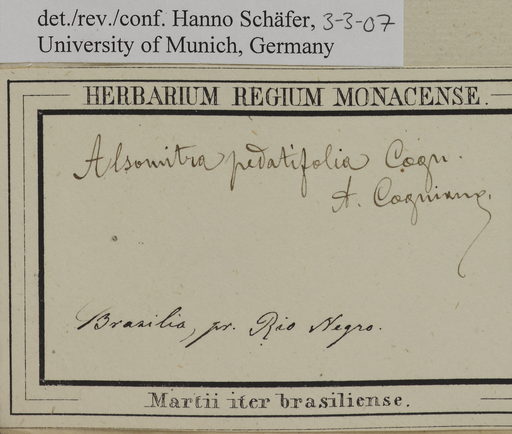 det./rev./conf. Hanno Schäfer, 3-3-07
University of Munich, Germany
HERBARIUM REGIUM MONACENSE.
Alsomitra pedatifolia Cogn.
A. Cogniaux.
Brasilia, pr. Rio Negro.
Martii iter brasiliense.